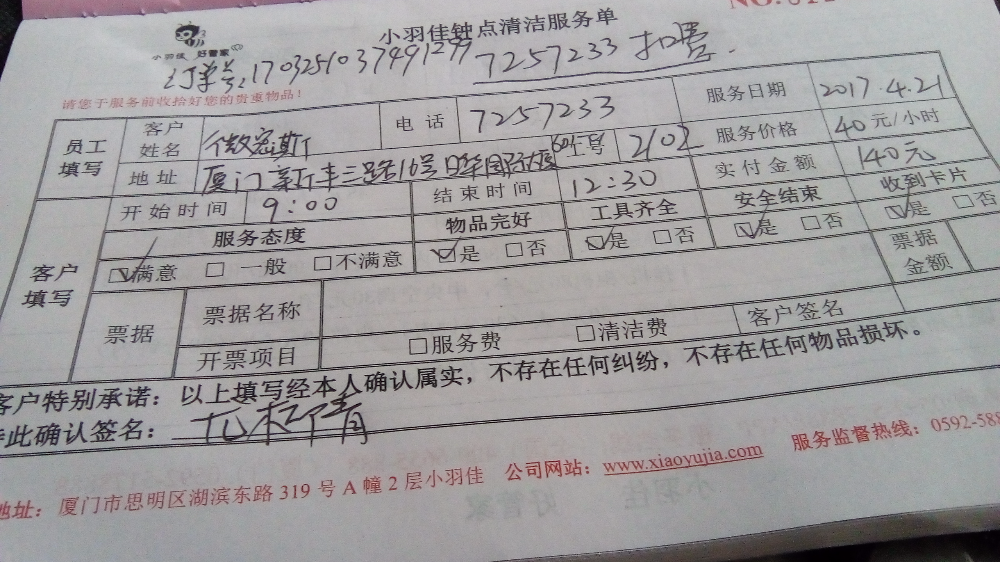 小羽佳 好管家
小羽佳钟点清洁服务单
NO:
订单号:1703251037491299 7257233 扣费.
请您于服务前收拾好您的贵重物品!
员工填写 客户姓名 微宏斯 电话 7257233 服务日期 2017.4.21
地址 厦门新丰三路16号日华国际大厦 工号 2102 服务价格 40元/小时
客户填写 开始时间 9:00 结束时间 12:30 实付金额 140元
服务态度 物品完好 工具齐全 安全结束 收到卡片
☑满意 □一般 □不满意 ☑是 □否 ☑是 □否 ☑是 □否 ☑是 □否
票据 票据名称 票据金额
开票项目 □服务费 □清洁费 客户签名
客户特别承诺:以上填写经本人确认属实,不存在任何纠纷,不存在任何物品损坏。
此确认签名:
地址:厦门市思明区湖滨东路319号A幢2层小羽佳 公司网站:www.xiaoyujia.com 服务监督热线:0592-588